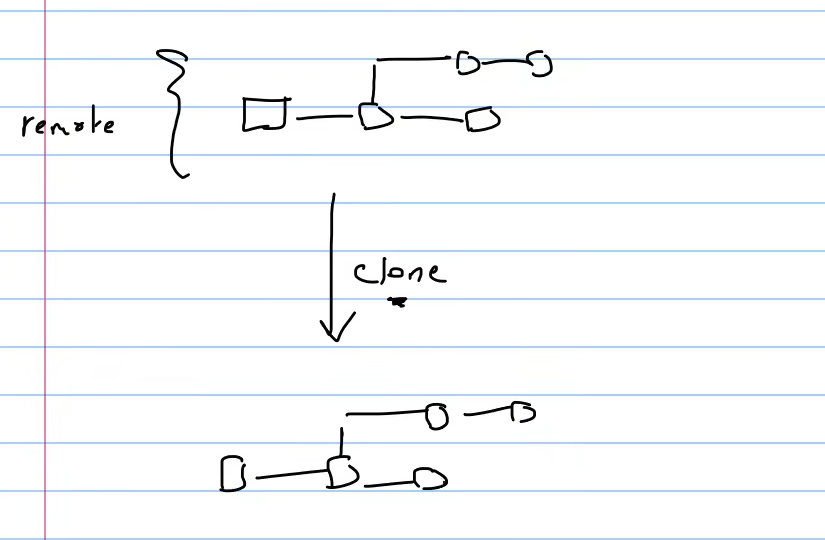 remote
clone